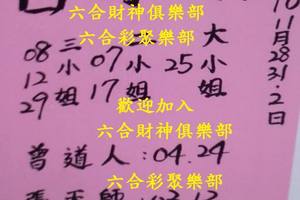 六合財神俱樂部
六合彩聚樂部
大小姐
三小姐
08 07 25
12
29 17
10
11月
28
31.2日
歡迎加入
六合財神俱樂部
曾道人:04.24
六合彩聚樂部